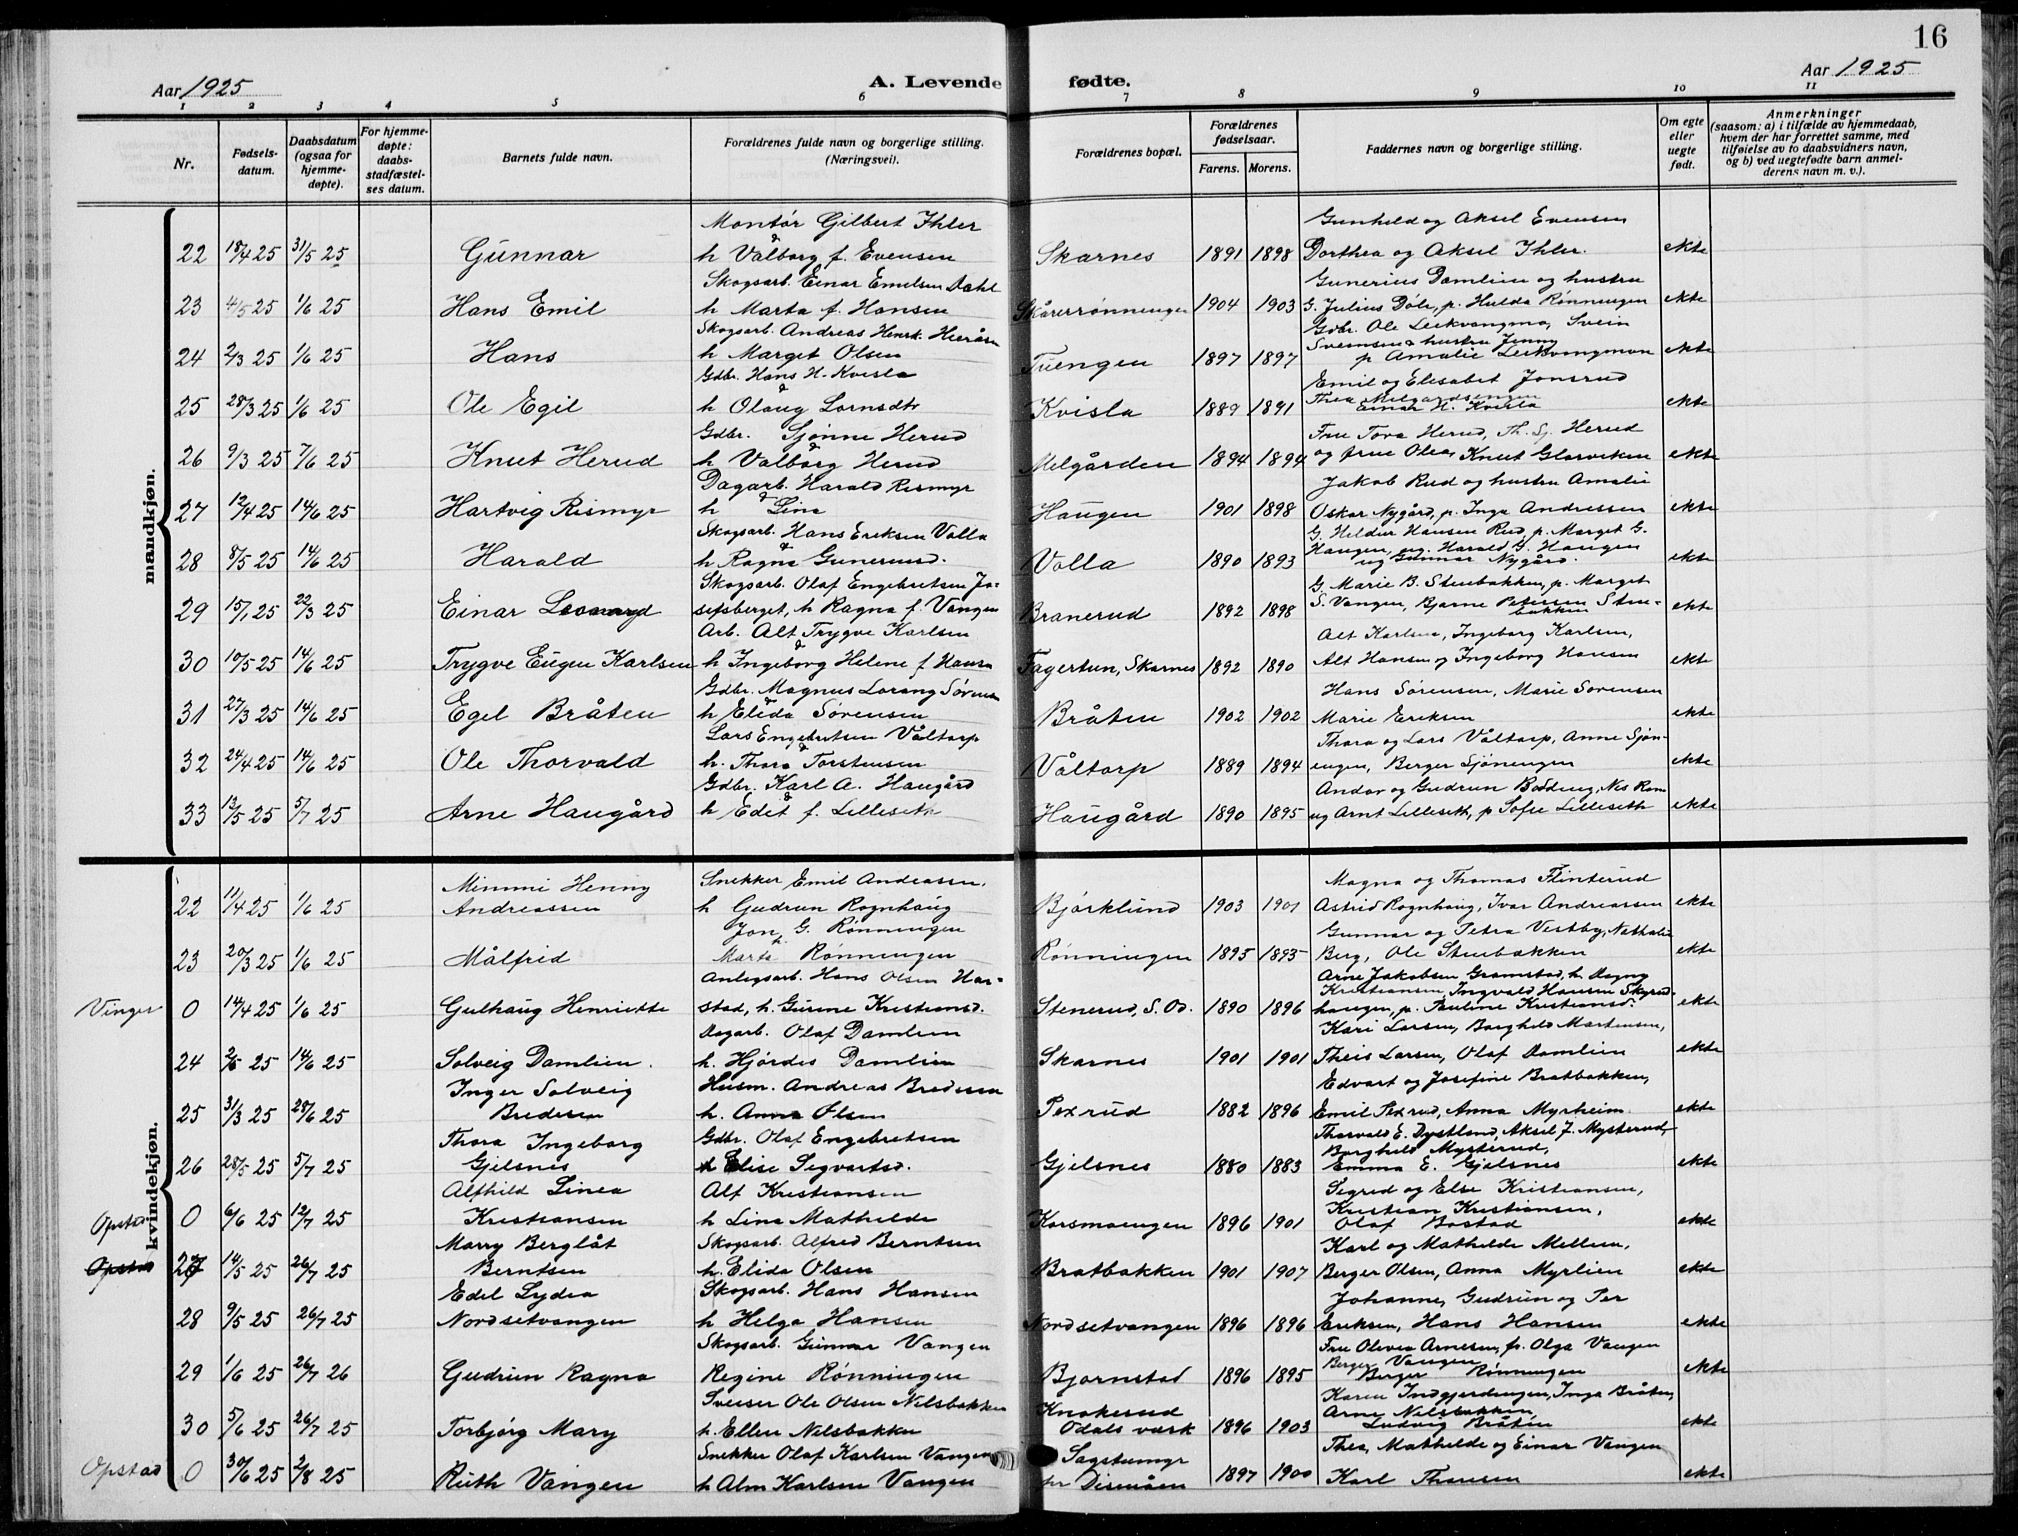 16
Aar 1925
A. Levende fødte.
Aar 1925
1 2 3 4 5 6 7 8 9 10 11
Nr.
Fødsels-
datum.
Daabsdatum
(ogsaa for
hjemme-
døpte).
For hjemme-
døpte:
daabs-
stadfæstel-
ses datum.
Barnets fulde navn.
Forældrenes fulde navn og borgerlige stilling.
(Næringsvei).
Forældrenes bopæl.
Forældrenes
fødselsaar.
Farens. Morens.
Faddernes navn og borgerlige stilling.
Om egte
eller
uegte
født.
Anmerkninger
(saasom: a) i tilfælde av hjemmedaab,
hvem der har forrettet samme, med
tilføielse av to daabsvidners navn,
og b) ved uegtefødte barn anmel-
derens navn m. v.).
mandkjøn.
Montør Gilbert Ihler Gunhild og Aksel Evensen
22 18/4 25 31/5 25 Gunnar h Valborg f. Evensen Skarnes 1891 1898 Dorthea og Aksel Ihler. ekte
Skogsarb. Einar Emilsen Dahl Gunerius Damlien og hustru
23 4/5 25 1/6 25 Hans Emil h Marta f. Hansen Skårerrønningen 1904 1903 G. Julius Døle, p. Hulda Rønningen ekte
Skogsarb. Andreas Henrk. Gdbr. Ole Leikvangmo, Svein
24 2/3 25 1/6 25 Hans h Marget Olsen Tuengen 1897 1897 Svensen & hustru Jenny
p Amalie Leikvangmon ekte
Gdbr. Hans H. Kvisla Emil og Elisabet Jonsrud
25 28/3 25 1/6 25 Ole Egil h Olaug Larsdtr Kvisla 1889 1891 Thea Melgardsengen
Einar H. Kvisla ekte
Gdbr. Sjønne Herud Fru Tora Herud, Th. Sj. Herud
26 9/3 25 7/6 25 Knut Herud h Valborg Herud Melgården 1894 1894 og frue Olea, Knut Glorviken ekte
Dagarb. Harald Rismyr Jakob Rud og hustru Amalie
27 12/4 25 14/6 25 Hartvig Rismyr h Lina Haugen 1901 1898 Oskar Nygård, p. Inga Andressen ekte
Skogsarb. Hans Eriksen Volla G. Heldur Hansen Rud, p. Marget G.
28 8/5 25 14/6 25 Harald h Ragna Gunerusd. Volla 1890 1893 Haugen, ug. Harald G. Haugen
ug Gunnar Nygård. ekte
Skogsarb. Olaf Engebretsen Jo- G. Marie B. Stenbakken, p. Marget
29 15/1 25 22/3 25 Einar Leonard sefsberget, h Ragna f. Vangen Branerud 1892 1898 S. Vangen, Bjarne Petersen Sten-
bakken ekte
Arb. Alf Trygve Karlsen Alf Karlsen, Ingeborg Karlsen,
30 10/5 25 14/6 25 Trygve Eugen Karlsen h Ingeborg Helene f Hansen Fagertun, Skarnes 1892 1890 Alf Hansen og Ingeborg Hansen ekte
Gdbr. Magnus Lorang Sørensen Hans Sørensen, Marie Sorensen
31 27/3 25 14/6 25 Egil Bråten h Elida Sørensen Bråten 1902 1902 Marie Eriksen ekte
Lars Engebretsen Våltorp Thora og Lars Våltorp, Anne Sjøn-
32 24/4 25 14/6 25 Ole Thorvald h. Thora Torstensen Våltorp 1889 1894 engen, Berger Sjønengen ekte
Gdbr. Karl A. Haugård Andor og Gudrun Bødding, Nis Rom
33 13/5 25 5/7 25 Arne Haugård h Edit f. Lilleseth Haugård 1890 1895 ug Arnt Lilleseth, p Sofie Lilleseth ekte
kvindekjøn.
Mimmi Henny Snekker Emil Andreassen, Magna og Thomas Flinterud
22 11/4 25 1/6 25 Andreassen h Gudrun Rognhaug Bjørklund 1903 1901 Astrid Rognhaug, Ivar Andreassen ekte
Jon G. Rønningen Gunnar og Petra Vestby, Nathalie
23 20/3 25 1/6 25 Målfrid Marta Rønningen Rønningen 1895 1893 Berg, Ole Stenbakken ekte
Anlegsarb. Hans Olsen Har- Arne Jakobsen Gramstad, h Dagny
Vinger 0 14/4 25 1/6 25 Gulhaug Henriette stad, h. Gurine Kristiansd. Stenerud, S. Od. 1890 1896 Kristiansen, Ingvald Hansen Skyrud-
haugen, p. Pauline Kristiansd. ekte
Dagarb. Olaf Damlien Kari Larsen, Borghild Martensen,
24 2/5 25 14/6 25 Solveig Damlien. h. Hjørdis Damlien Skarnes 1901 1901 Theis Larsen, Olaf Damlien ekte
Inger Solveig Husm. Andreas Bredesen Edvart og Josefine Bratbakken,
25 31/3 25 28/6 25 Bredesen h. Anna Olsen Pexrud 1882 1896 Emil Pexrud, Anna Myrheim. ekte
Thora Ingeborg Gdbr. Olaf Engebretsen Thorvald E. Dystland, Aksel J. Mysterud,
26 28/5 25 5/7 25 Gjelsnes h Elise Segvartsd. Gjelsnes 1880 1883 Borghild Mysterud,
Emma E. Gjelsnes ekte
Alfhild Linea Alf Kristiansen Segred og Else Kristiansen,
Opstad 0 6/6 25 12/7 25 Kristiansen h Lina Mathilde Korsmoengen 1896 1901 Kristian Kristiansen,
Olaf Bostad ekte
Marry Berglåt Skogsarb. Alfred Berntsen Karl og Mathilde Mellem,
Opstad 27 14/5 25 26/7 25 Berntsen h. Elida Olsen Bratbakken 1901 1907 Berger Olsen, Anna Myrlien ekte
Edel Lydia Skogsarb. Hans Hansen Johanne, Gudrun og Per
28 9/5 25 26/7 25 Nordsetvangen h Helga Hansen Nordsetvangen 1896 1896 Eriksen, Hans Hansen ekte
Skogsarb. Gunnar Vangen Fru Olivia Arnesen, p. Olga Vangen
29 1/6 25 26/7 26 Gudrun Ragna Regine Rønningen Bjørnstad 1896 1895 Berger Vangen
Berger Rønningen ekte
Sveiser Ole Olsen Nilsbakken Knakerud Karen Indgjerdingen, Inga Bråten,
30 5/6 25 26/7 25 Torbjørg Mary h. Ellen Nilsbakken Odals verk 1896 1903 Arne Nilsbakken,
Ludvig Bråten ekte
Snekker Olaf Karlsen Vangen Sagstumyr Thea, Mathilde og Einar Vangen
Opstad 0 30/6 25 2/8 25 Ruth Vangen h Alm Karlsen Vangen pr Disenåen 1897 1900 Karl Thansen ekte